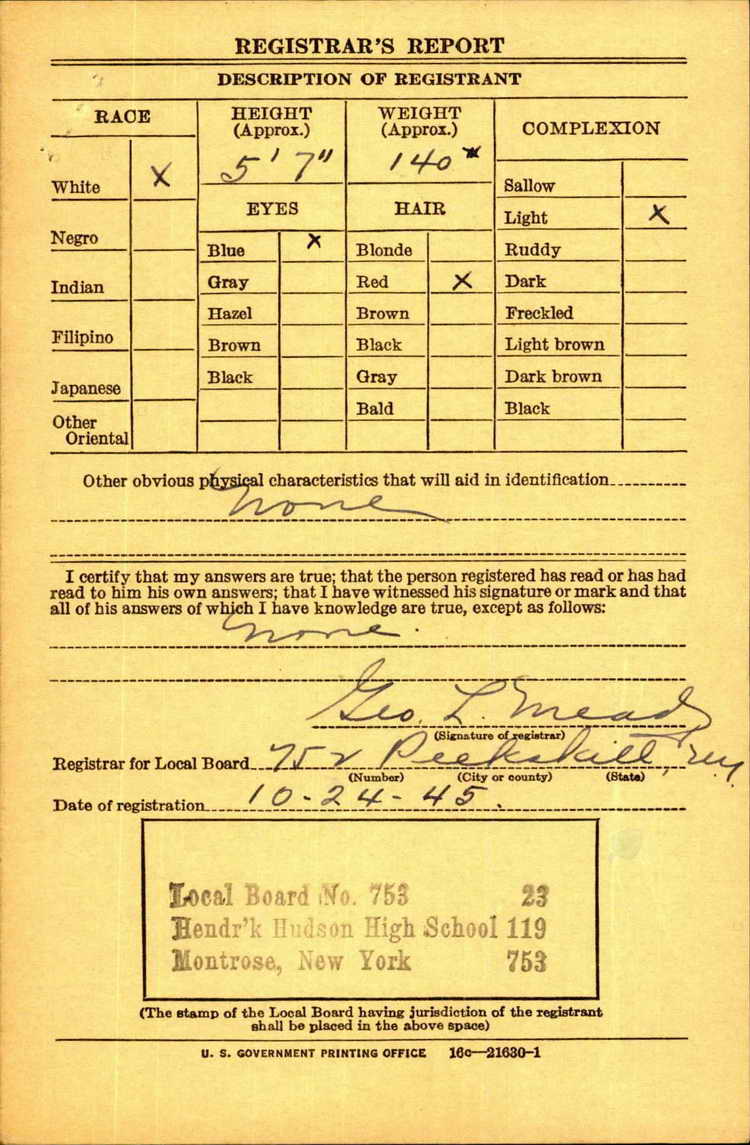 REGISTRAR'S REPORT
DESCRIPTION OF REGISTRANT
RACE
HEIGHT
(Approx.)
WEIGHT
(Approx.)
COMPLEXION
5' 7"
140#
White X
Negro
Indian
Filipino
Japanese
Other
Oriental
EYES
Blue X
Gray
Hazel
Brown
Black
HAIR
Blonde
Red X
Brown
Black
Gray
Bald
Sallow
Light X
Ruddy
Dark
Freckled
Light brown
Dark brown
Black
Other obvious physical characteristics that will aid in identification
None
I certify that my answers are true; that the person registered has read or has had
read to him his own answers; that I have witnessed his signature or mark and that
all of his answers of which I have knowledge are true, except as follows:
None.
Geo. L. Mead
(Signature of registrar)
Registrar for Local Board 752 Peekskill, NY.
(Number) (City or county) (State)
Date of registration 10-24-45.
Local Board No. 753 23
Hendr'k Hudson High School 119
Montrose, New York 753
(The stamp of the Local Board having jurisdiction of the registrant
shall be placed in the above space)
U. S. GOVERNMENT PRINTING OFFICE 16c—21630-1